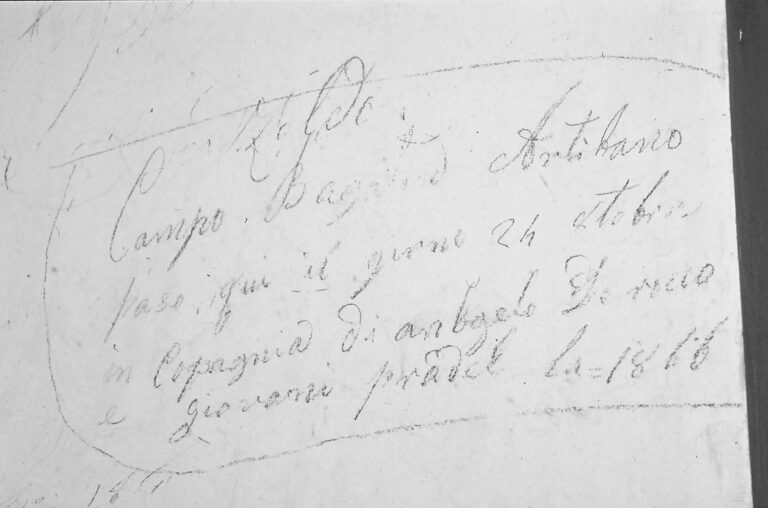 Zoldo
Campo Bagattino Artibano
paso qui il giorno 24 otobre
in Copagnia di anbgelo De rocco
e giovanni pradel la = 1866
18